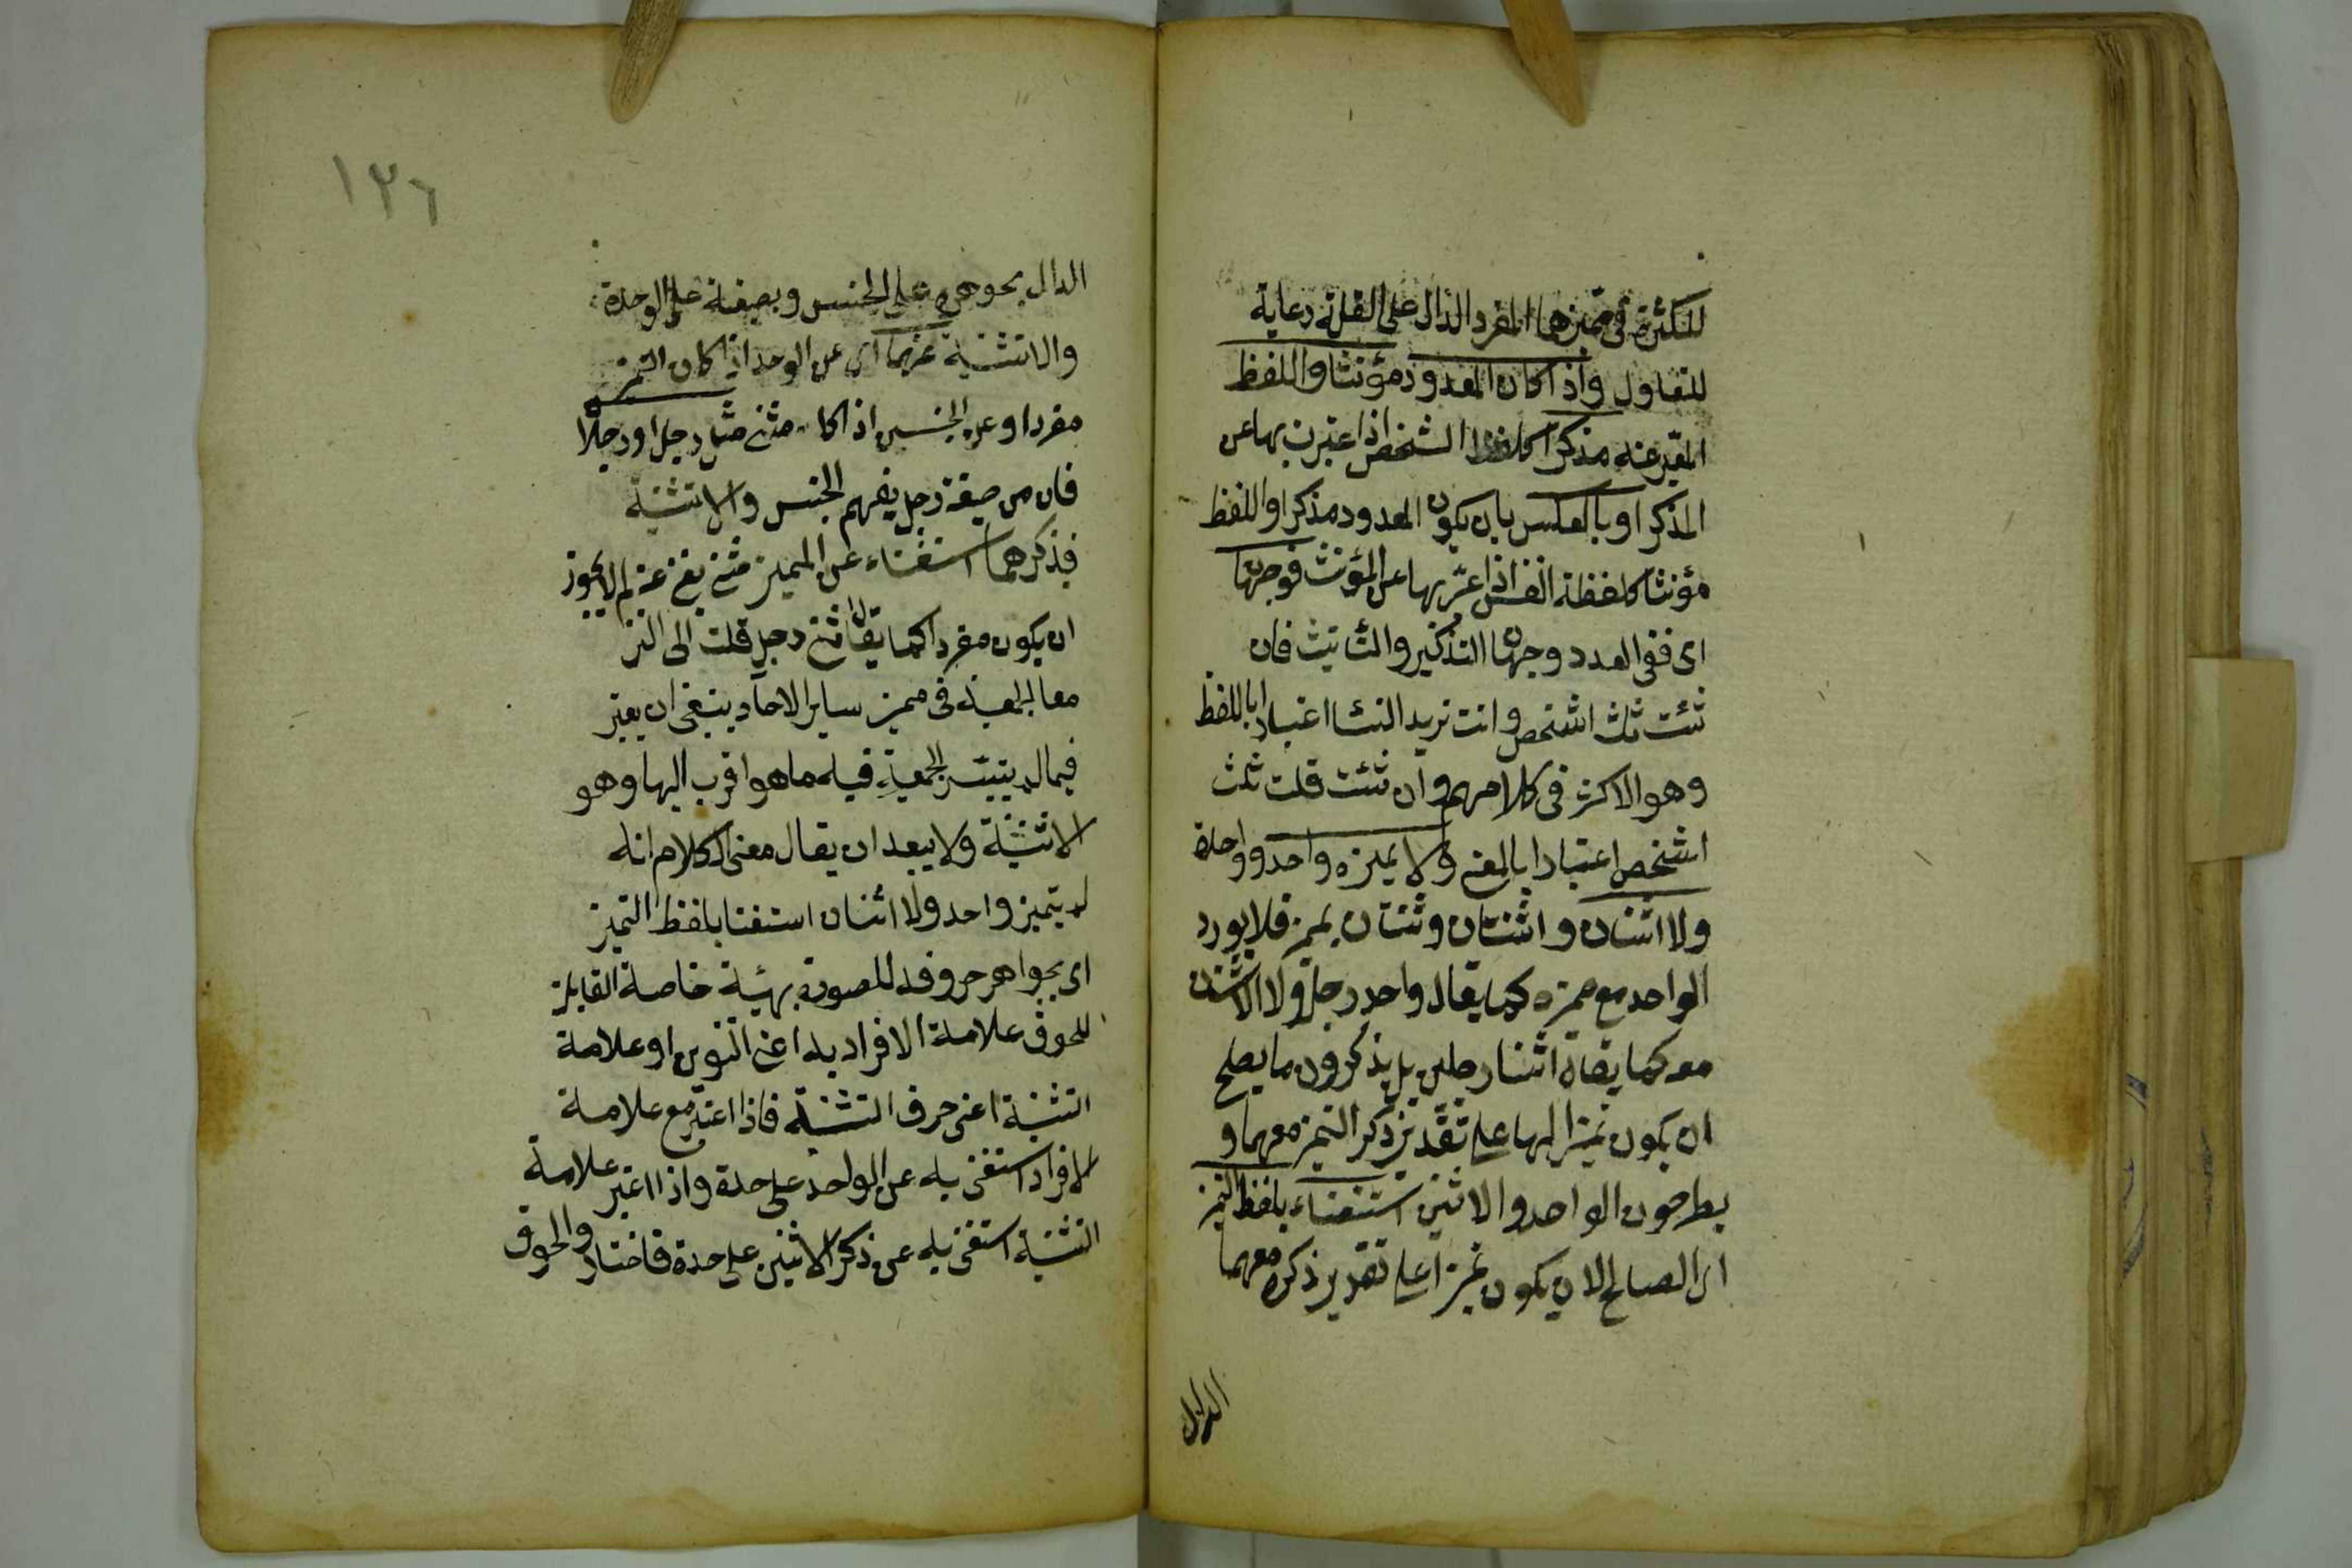 للكثرة فى مميزهما المفرد الدال على القلة رعاية
للتعاول واذا كان المعدود مؤنثا واللفظ
المعبر عنه مذكرا كلفظ الشخص اذا عبرت بها عن
المذكر او بالعكس بان يكون المعدود مذكرا واللفظ
مؤنثا كلفظة النفس اذا عبر بها عن المؤنث فوجهان
اى ففى العدد وجهان التذكير والتانيث فان
شئت ثلث اشخص وانت تريد النسا اعتبارا باللفظ
وهو الاكثر فى كلامهم وان شئت قلت ثلث
اشخص اعتبارا بالمعنى ولا يميزه واحد وواحدة
ولا اثنان واثنتان وثنتان بمميز فلا يورد
الواحد مع مميزه كما يقال واحد رجل ولا الاثنان
معه كما يقال اثنا رجلين بل يذكرون ما يصلح
ان يكون تميزا لهما على تقدير ذكر التميز معهما و
يطرحون الواحد والاثنين استغناء بلفظ التميز
اى الصالح لان يكون تميزا على تقدير ذكره معهما
الدال
١٢٦
الدال بجوهره على الجنس وبصيغة على الوحدة
والاثنينية عنهما اى عن الوحد اذا كان التميز
مفردا وعن الجنسين اذا كان مثنى مثل رجل او رجلا
فان من صيغة رجل يفهم الجنس والاثنينية
فذكرهما استغناء عن المميز مثنى يغنى عنه لم لا يجوز
ان يكون مفردا كما يقال اثنى رجل قلت الى التز
معا الجمعية فى مميز ساير الاحاد ينبغى ان يعتبر
فيما لم يتيسر الجمعية فيه ما هو اقرب اليها وهو
الاثنينية ولا يبعد ان يقال معنى الكلام انه
لم يتميز واحد ولا اثنان استغنا بلفظ التميز
اى بجواهر حروفه للمصورة بهيئة خاصة القابلة
للحوق علامة الافراد به اعنى التنوين او علامة
التثنية اعنى حرف التثنية فاذا اعتبر مع علامة
الافراد استغنى به عن الواحد على حدة واذا اعتبر علامة
التثنية استغنى به عن ذكر الاثنين على حدة فاختار والحوق